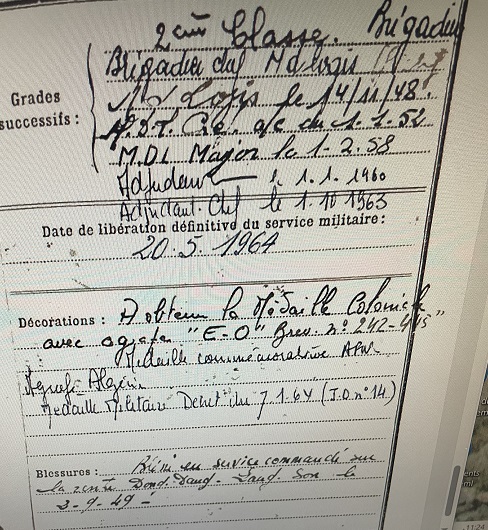 2ème Classe. Brigadier
Grades successifs :
Brigadier chef Mal Logis
Mal Logis le 14/11/48.
M.D.L. a/c du 1.1.52
M.D.L Major le 1-2.58
Adjudant le 1.1.1960
Adjudant-Chef le 1.10 1963
Date de libération définitive du service militaire :
20.5.1964
Décorations : A obtenu la Médaille Coloniale
avec agrafe "E-O" Brev. n° 242-
Médaille commémorative AFN
Agrafe Algérie
Médaille Militaire Décret du 7.1.64 (J.O. n°14)
Blessures : en service commandé sur
la route Dong-Dang - Lang Son le
3-9-49 -